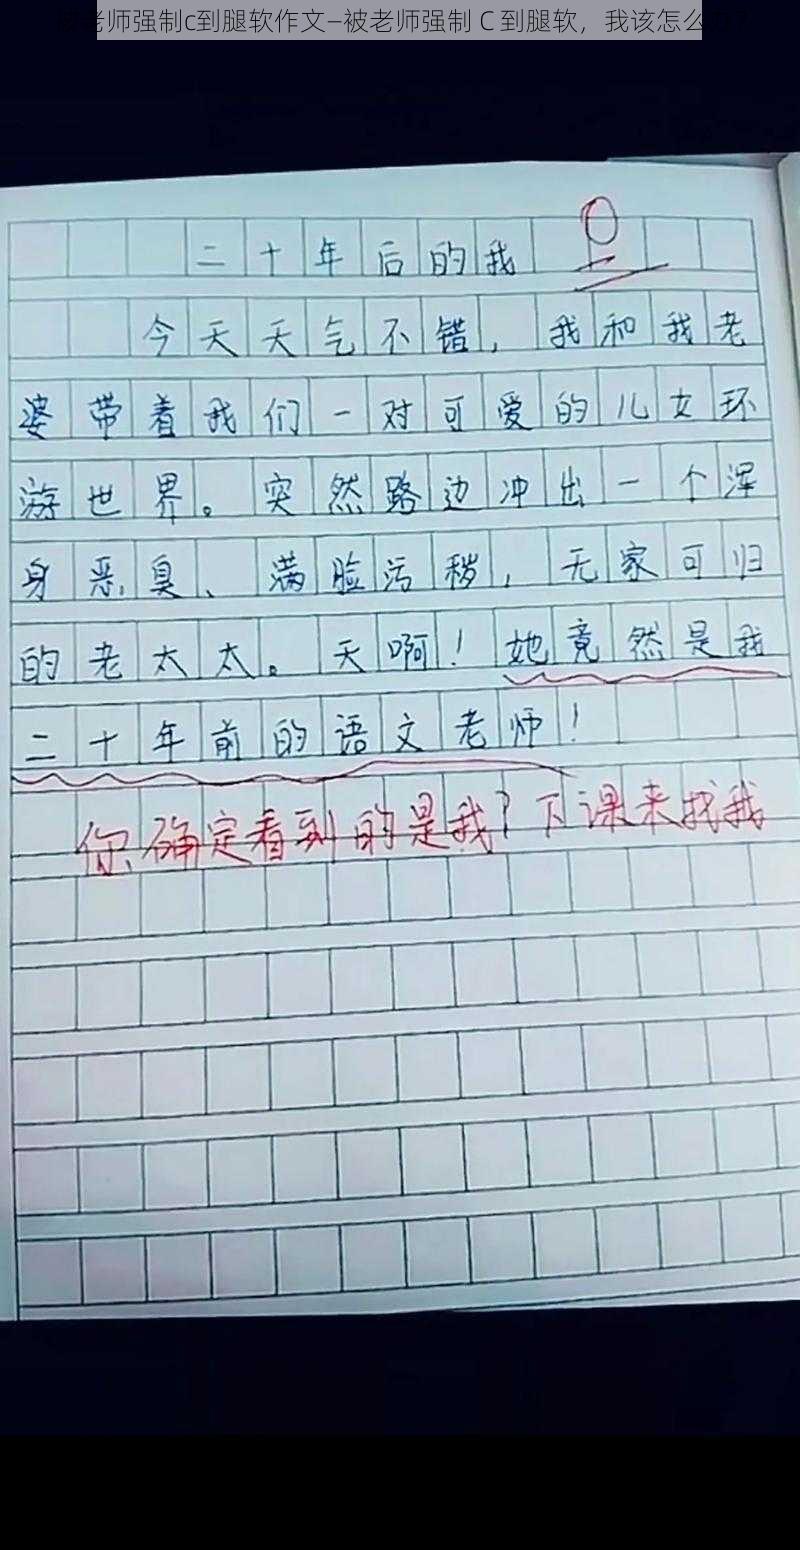 老师强制c到腿软作文–被老师强制 C 到腿软，我该怎么
二十年后的我 0
今天天气不错，我和我老
婆带着我们一对可爱的儿女环
游世界。突然路边冲出一个浑
身恶臭、满脸污秽，无家可归
的老太太。天啊！她竟然是我
二十年前的语文老师！
你确定看到的是我？下课来找我